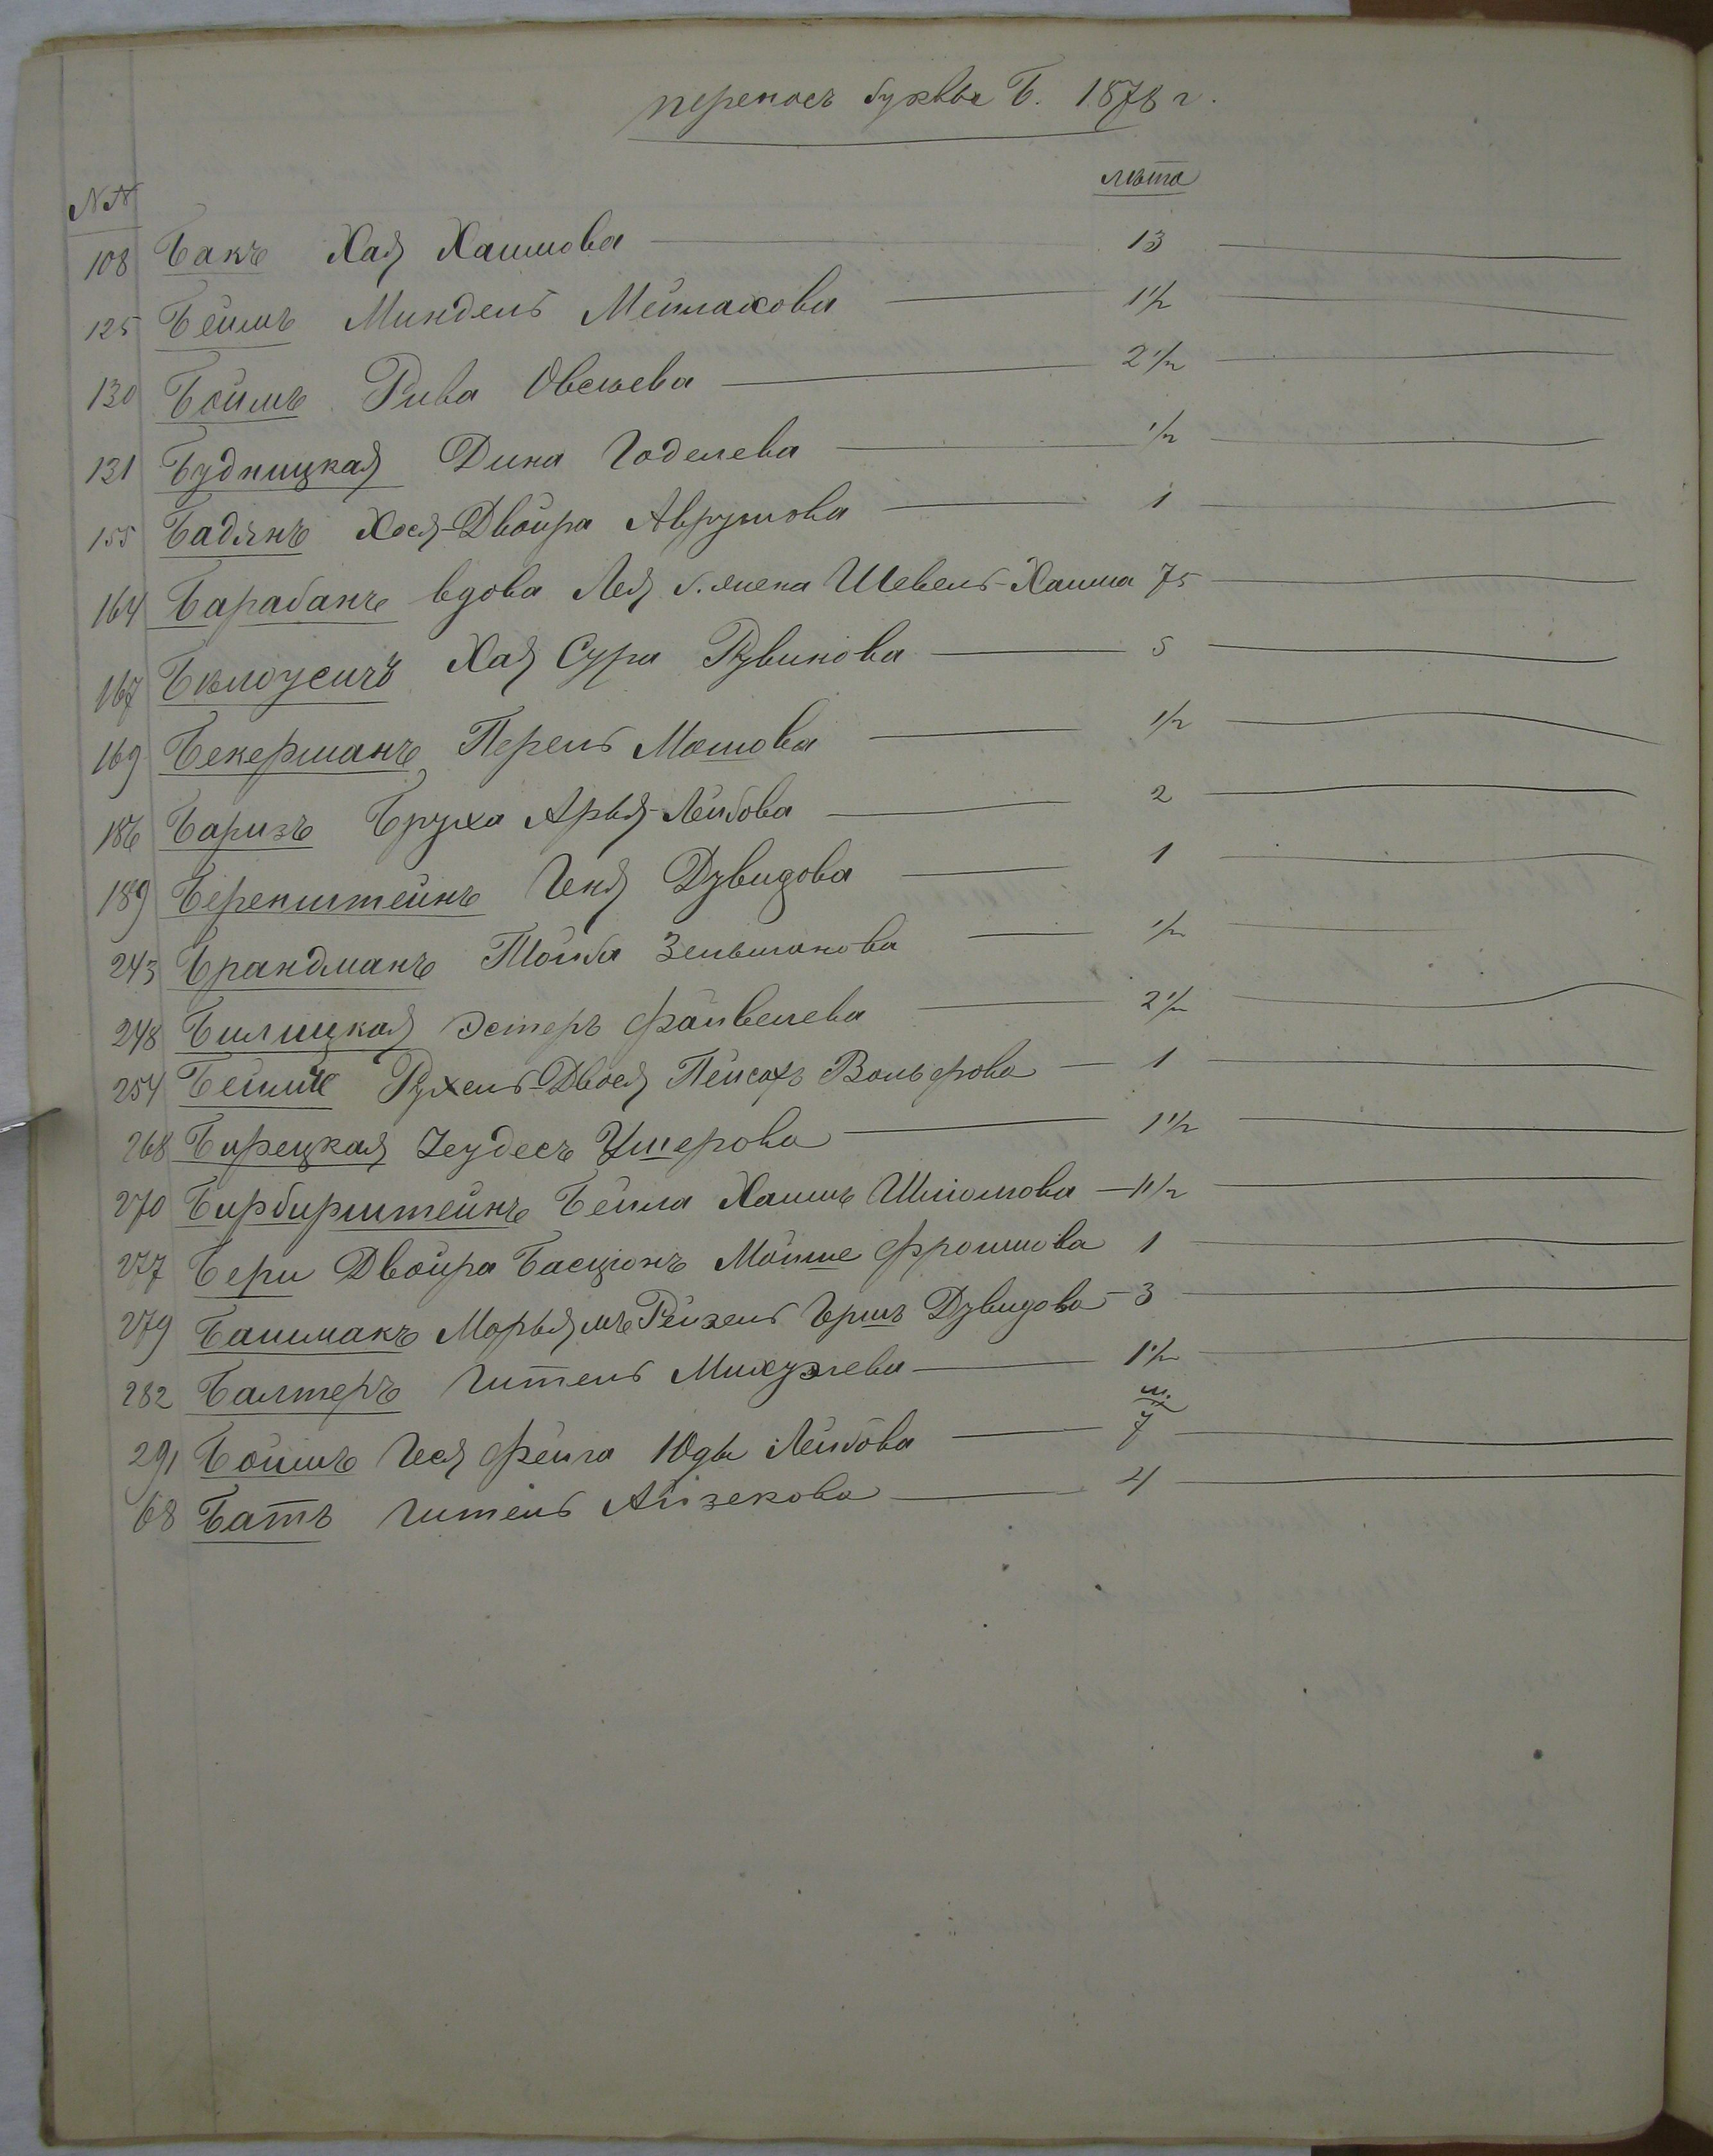 переносъ буквы Б. 1878 г.
№№ лѣта
108 Бакъ Хая Хаимова 13
125 Беймъ Миндель Мейлахова 1 1/2
130 Боймъ Рива Овсѣева 2 1/2
131 Будницкая Дина Годелева 1/2
155 Бадянъ Хася-Двойра Аврумова 1
164 Барабанъ вдова Лея б. жена Шевель-Хаима 75
167 Бѣлоусичъ Хая Сура Рувинова 5
169 Бекерманъ Перель Мошова 1/2
186 Баризъ Бруха Арья-Лейбова 2
189 Беренштейнъ Геня Дувидова 1
243 Брандманъ Тойба Зельмановa 1/2
248 Билицкая Эстеръ Файвелева 2 1/2
254 Бейлис Рухель-Двося Пейсахъ Вольфова 1
268 Бирецкая Ушерова 1 1/2
270 Бирбирштейнъ Бейла Хаимъ Шліомова 1 1/2
277 Бери Двойра Басціонъ Мойше Фроимова 1
279 Башмакъ Марьямъ Рейзель Гершъ Дувидова 3
282 Балтеръ Гитель Михуэлева 1 1/2
291 Боймъ Геся Фейга Юды Лейбова м. 7
68 Батъ Гитель Айзекова 4